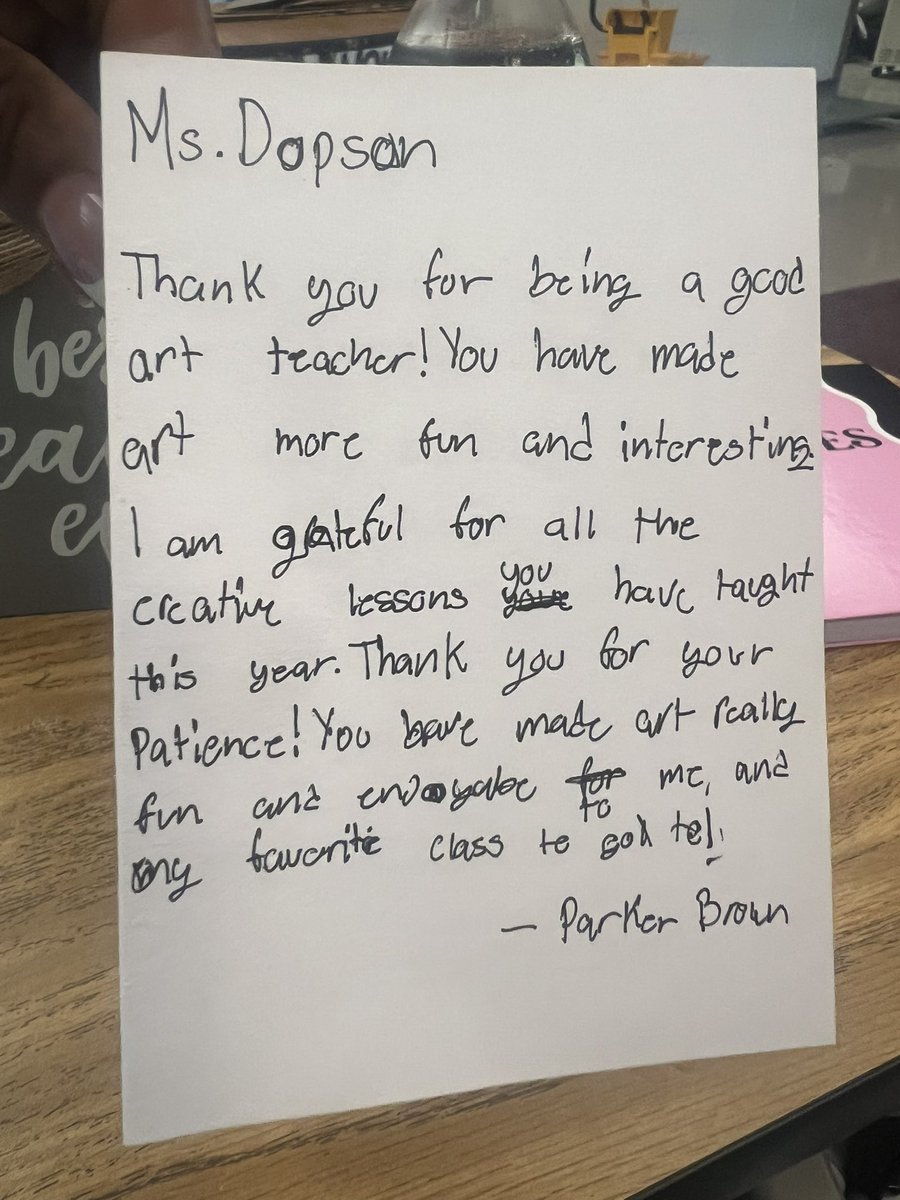 Ms. Dopson
Thank you for being a good
art teacher! You have made
art more fun and interesting.
I am grateful for all the
creative lessons you have taught
this year. Thank you for your
Patience! You have made art really
fun and enjoyabe to me, and
my favorite class to
— Parker Brown
be
ea
e
ES